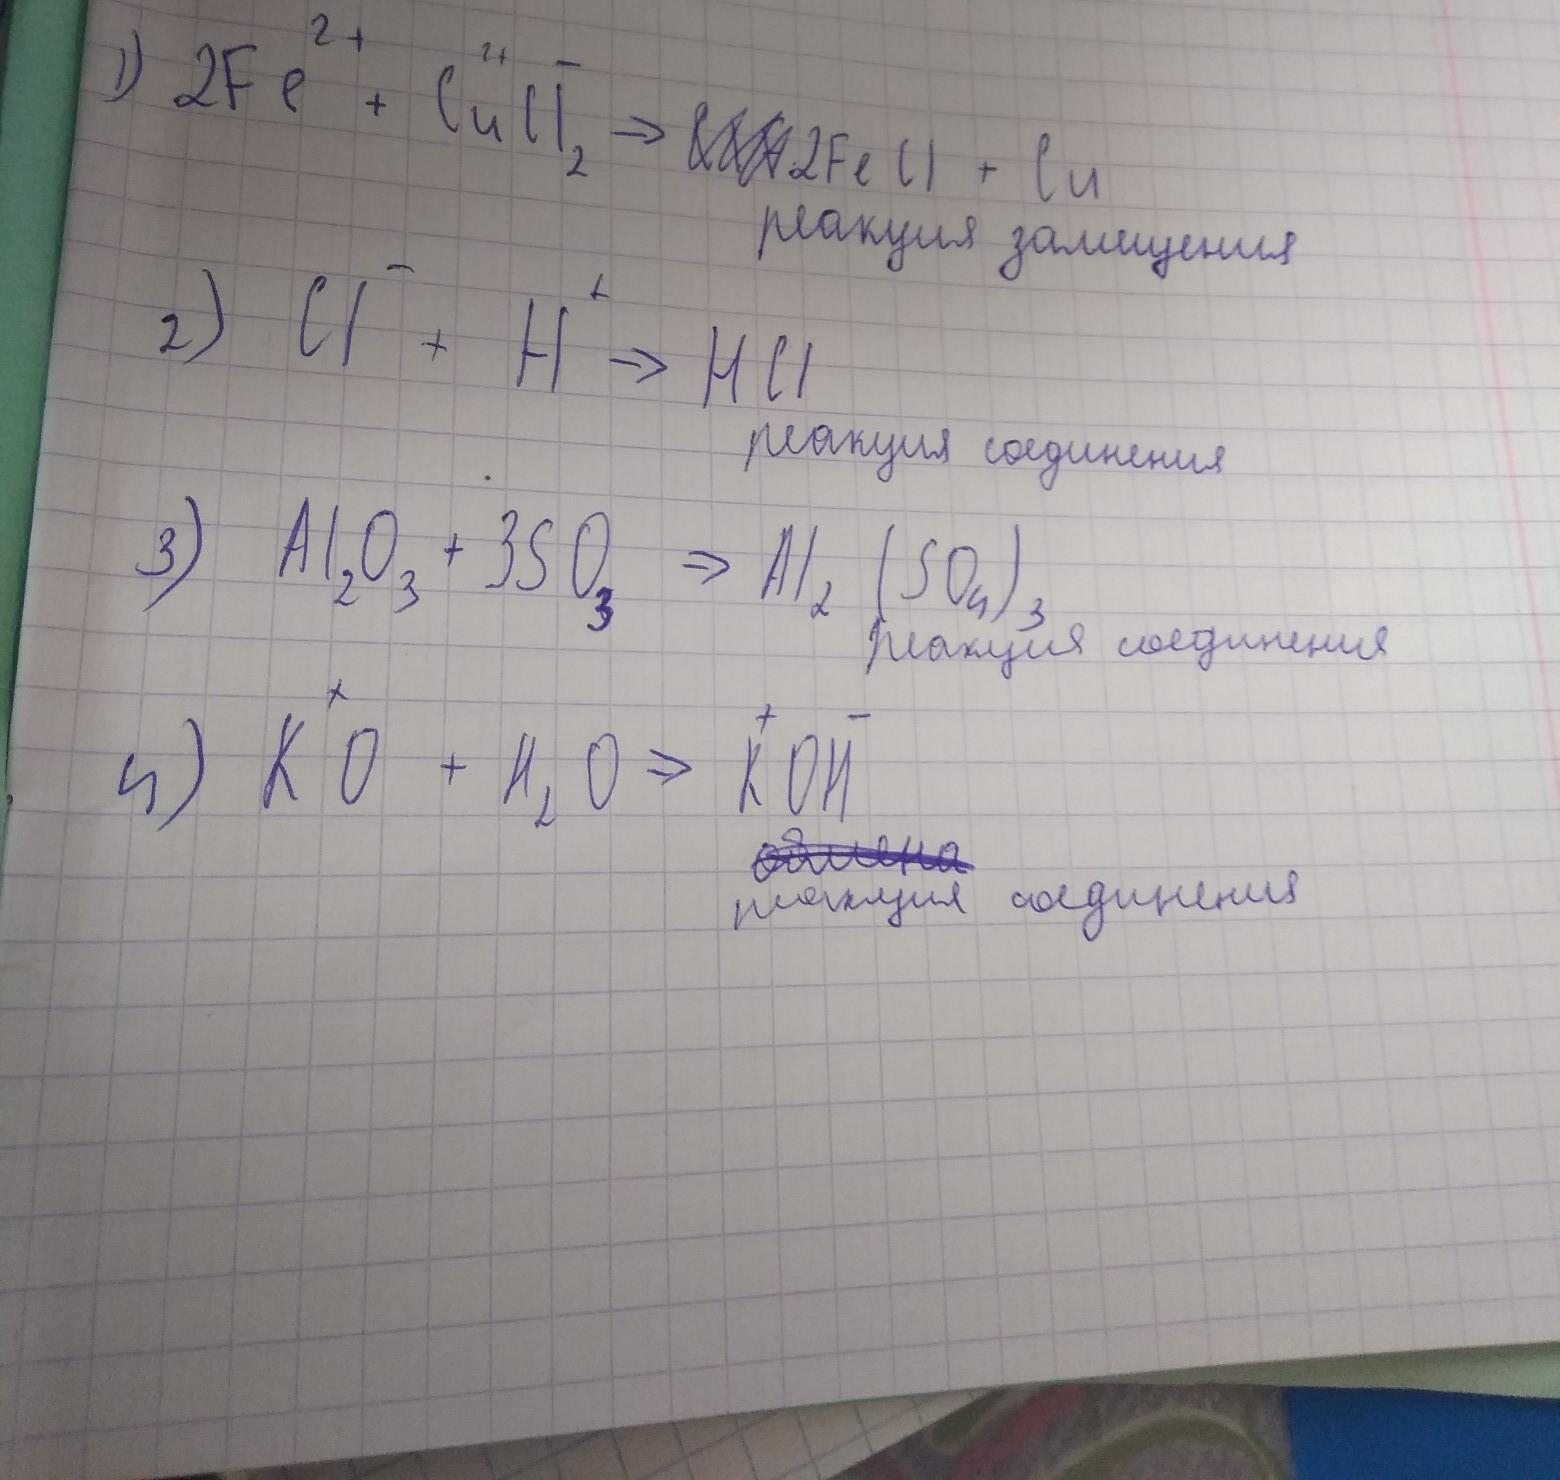 1) 2Fe²⁺ + Cu²⁺Cl⁻₂ ⇒ 2FeCl + Cu
реакция замещения
2) Cl⁻ + H⁺ ⇒ HCl
реакция соединения
3) Al₂O₃ + 3SO₃ ⇒ Al₂(SO₄)₃
реакция соединения
4) K⁺O + H₂O ⇒ K⁺OH⁻
обмена
реакция соединения